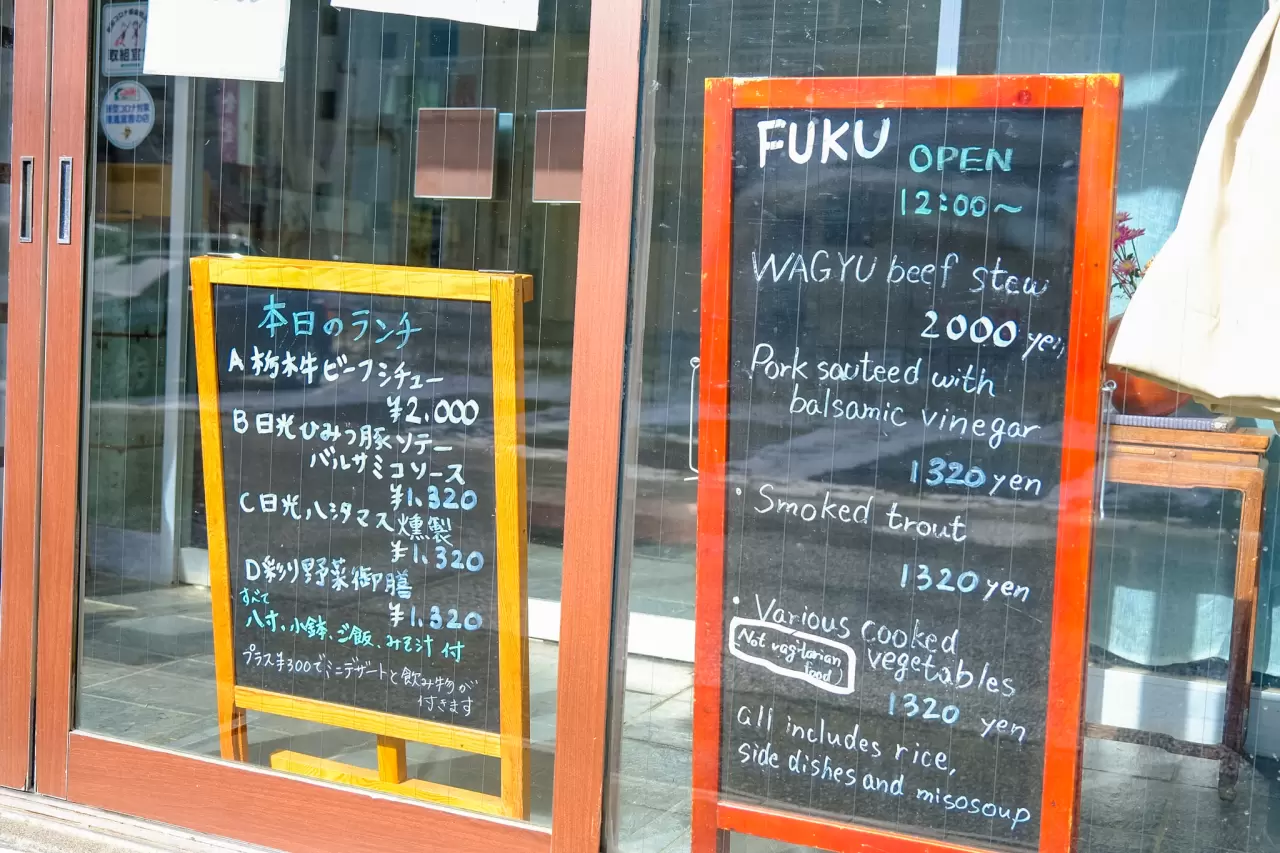 本日のランチ
A 栃木牛ビーフシチュー
¥2.000
B 日光ひみつ豚ソテー
バルサミコソース
¥1.320
C 日光八シオマス燻製
¥1.320
D 彩り野菜御膳
¥1.320
すべて
八寸、小鉢、ご飯、みそ汁 付
プラス¥300でミニデザートと飲み物が
付きます
FUKU
OPEN
12:00～
WAGYU beef stew
2000 yen
Pork sauteed with
balsamic vinegar
1320 yen
・Smoked trout
1320 yen
・Various cooked
vegetables
Not vagitarian
food)
1320 yen
all includes rice,
side dishes and misosoup